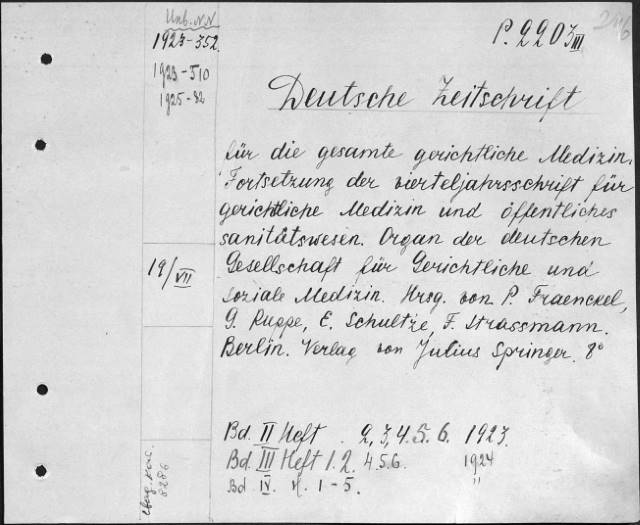 Unb. N.N.
1923-352.
1923-510
1925-82
P. 2203 III
Deutsche Zeitschrift
für die gesamte gerichtliche Medizin.
Fortsetzung der vierteljahrsschrift für
gerichtliche Medizin und öffentliches
sanitätswesen. Organ der deutschen
Gesellschaft für Gerichtliche und
soziale Medizin. Hrsg. von P. Fraenckel,
G. Puppe, E. Schultze, F. Strassmann.
Berlin. Verlag von Julius Springer. 8°
19/VII
Bd. II Heft . 2,3,4.5.6. 1923.
Bd. III Heft 1.2. 4.5.6. 1924
Bd. IV. H. 1-5. "
8286